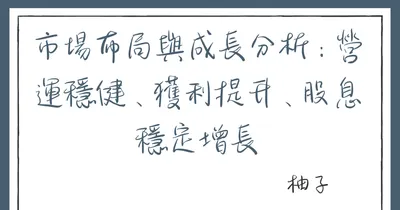 市場布局與成長分析：營
運穩健、獲利提升、股息
穩定增長
柚子